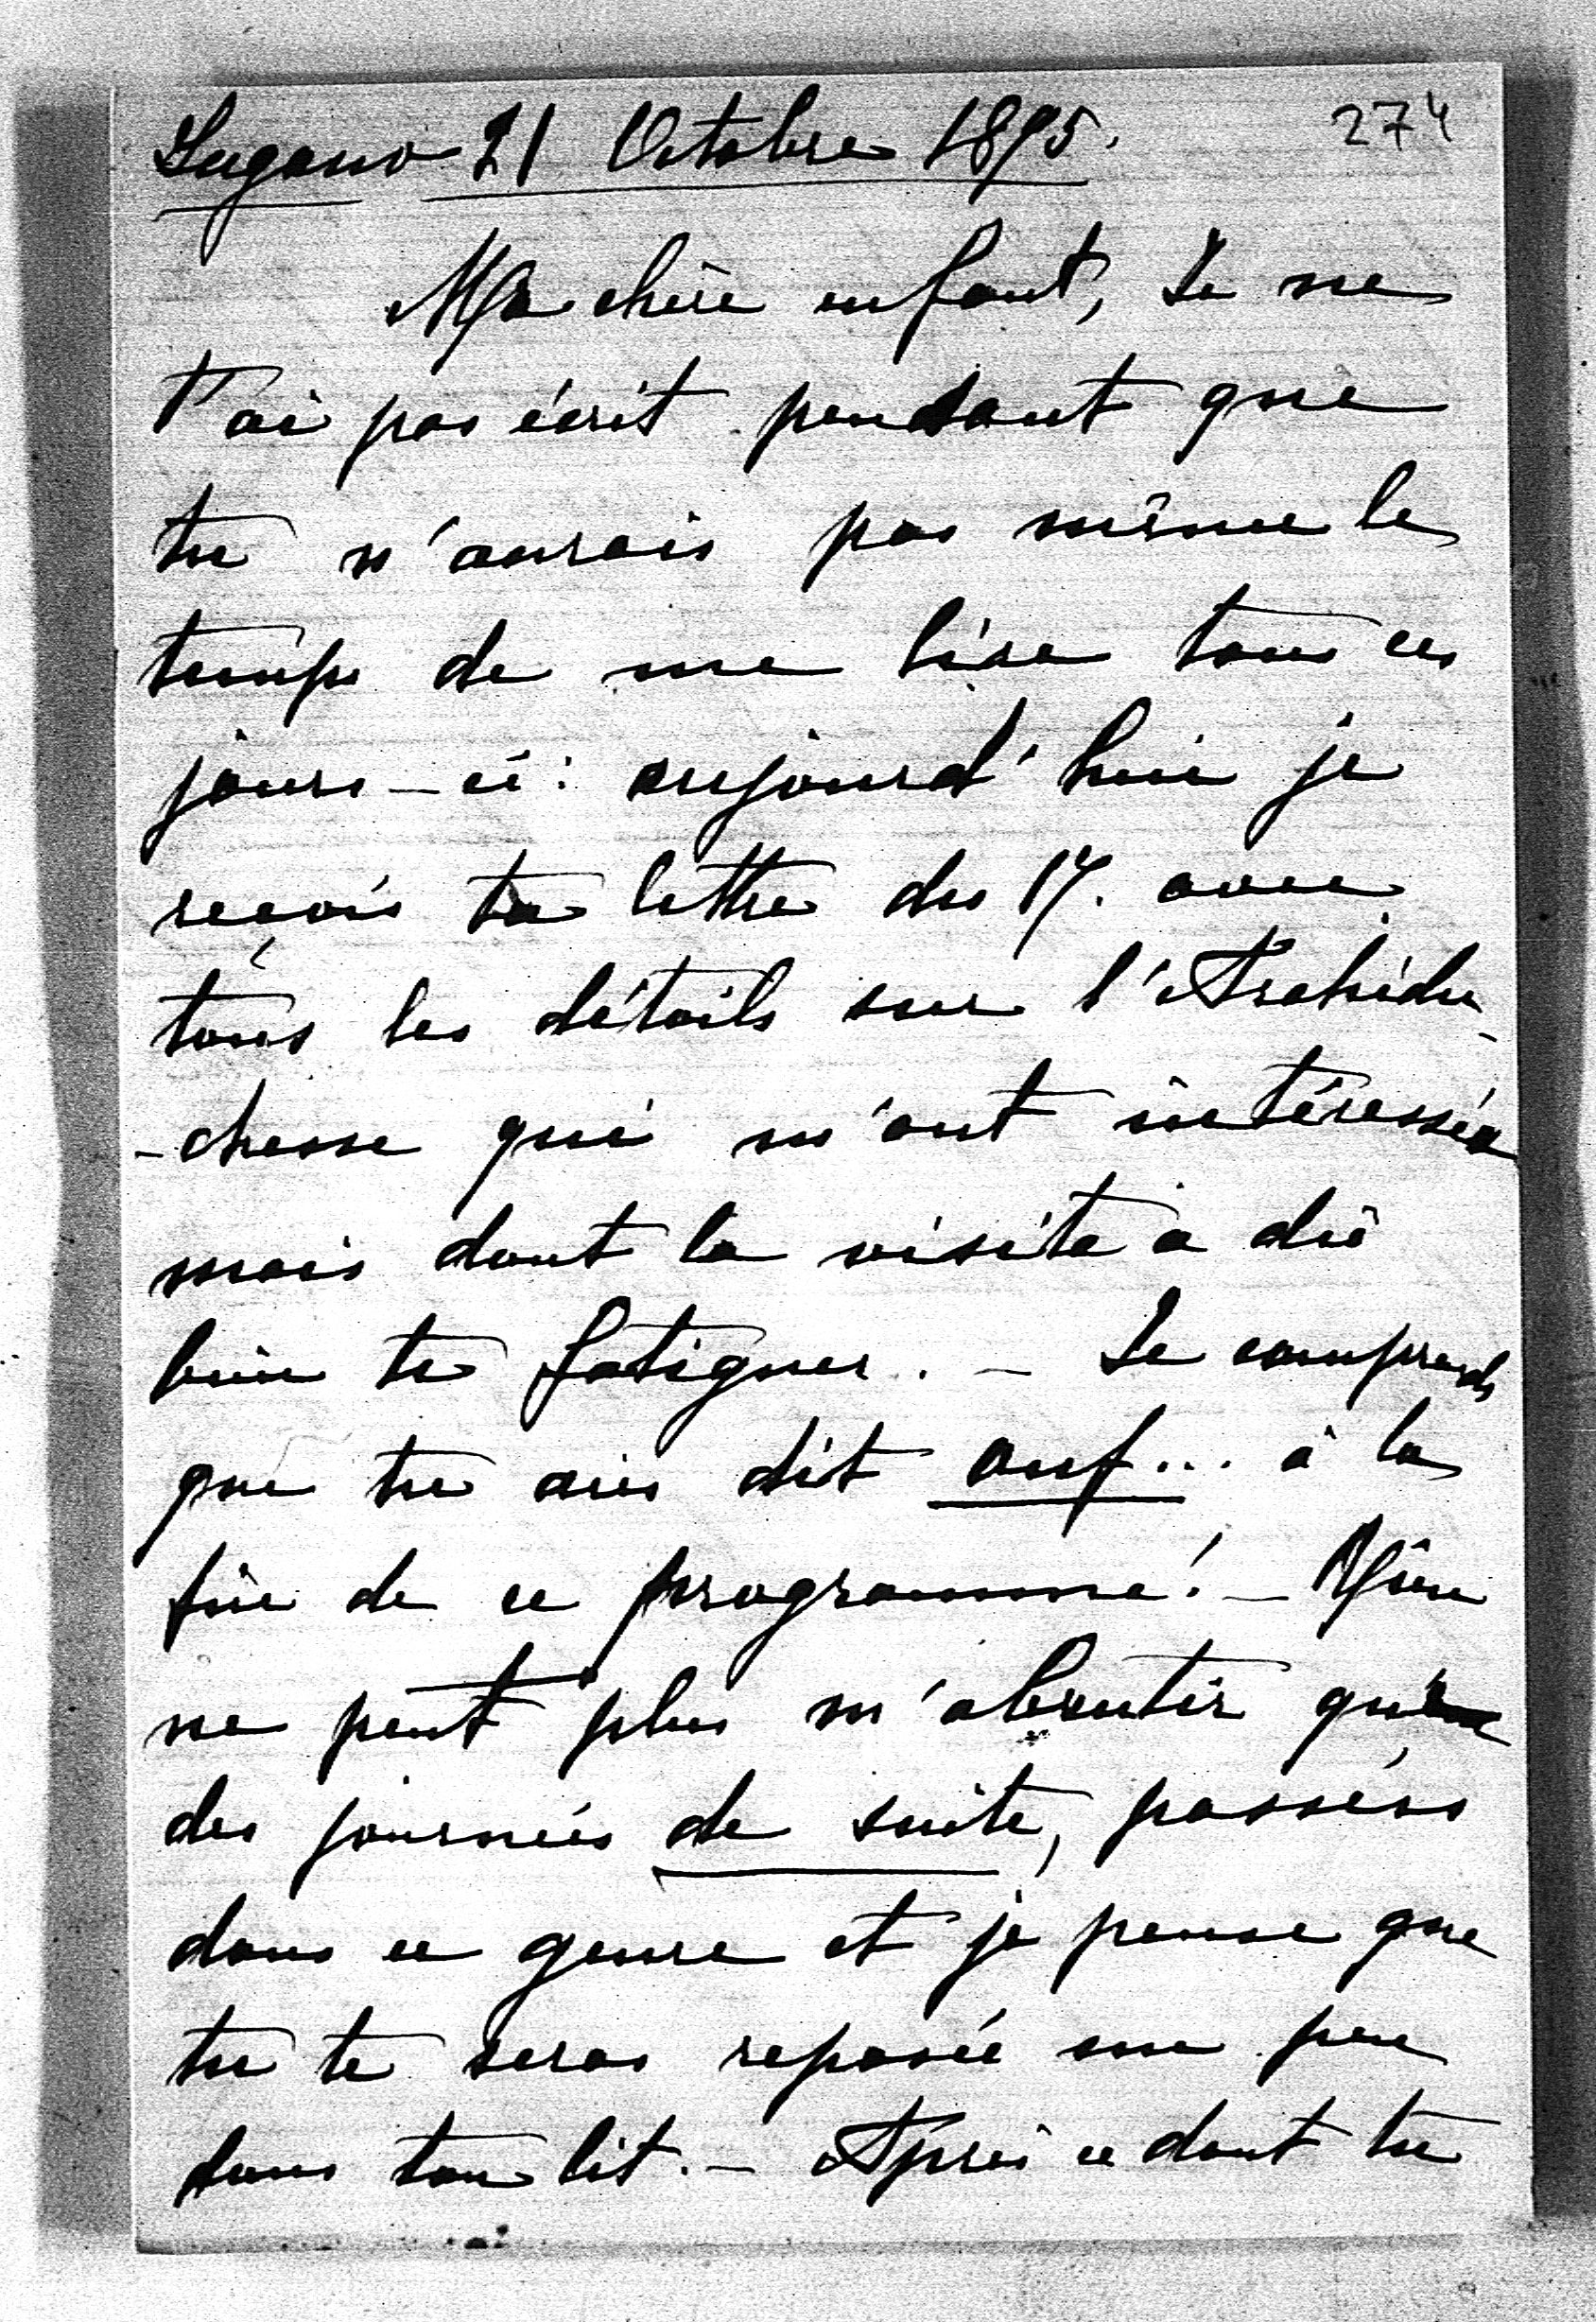 Lugano 21 Octobre 1895. 274
Ma chère enfant, Je ne
t'ai pas écrit pendant que
tu n'aurais pas même le
temps de me lire tous ces
jours-ci: aujourd'hui je
reçois ta lettre du 17. avec
tous les détails sur l'Archidu-
-chesse qui m'ont intéressée
mais dont la visite a dû
bien te fatiguer. – Je comprends
que tu aies dit ouf... à la
fin de ce programme! – Rien
ne peut plus m'abrutir que
des journées de suite, passées
dans ce genre et je pense que
tu te seras reposée un peu
dans ton lit. – Après ce dont tu